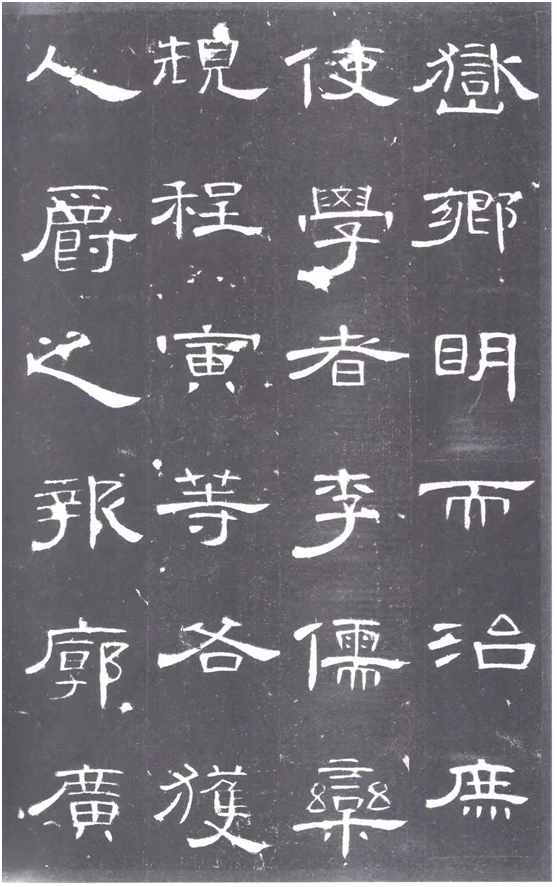 嶽鄉明而治庶
使學者李儒欒
規程寅等各獲
人爵之報廓廣